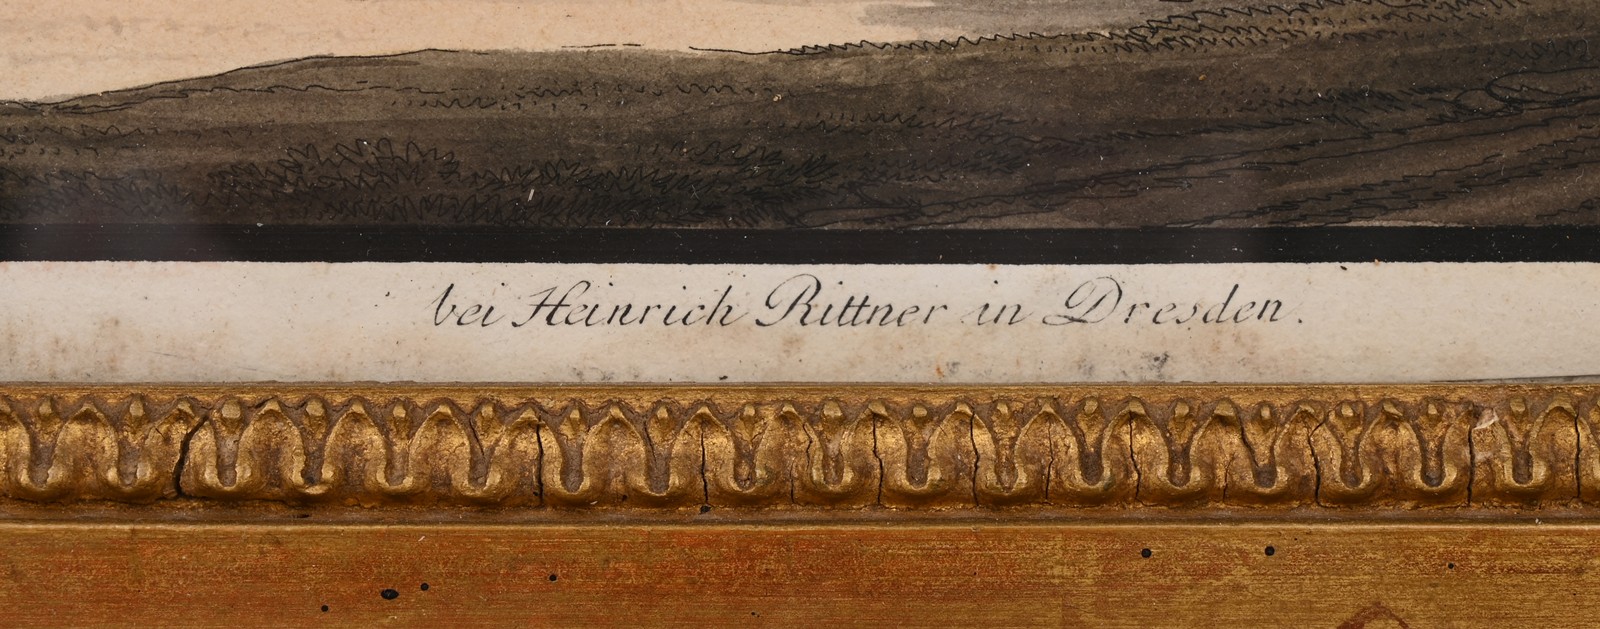 bei Heinrich Rittner in Dresden.